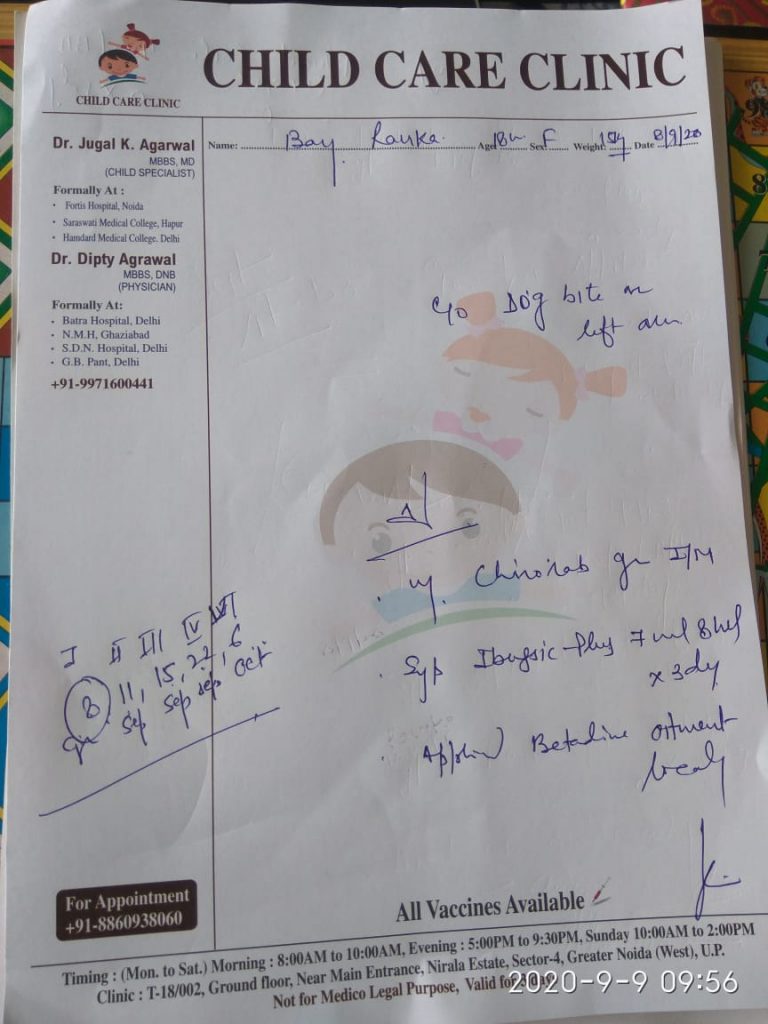 CHILD CARE CLINIC
CHILD CARE CLINIC
Dr. Jugal K. Agarwal
MBBS, MD
(CHILD SPECIALIST)
Formally At :
• Fortis Hospital, Noida
• Saraswati Medical College, Hapur
• Hamdard Medical College. Delhi
Dr. Dipty Agrawal
MBBS, DNB
(PHYSICIAN)
Formally At:
• Batra Hospital, Delhi
• N.M.H, Ghaziabad
• S.D.N. Hospital, Delhi
• G.B. Pant, Delhi
+91-9971600441
Name: Age Sex F Weight Date 8/9/20
c/o Dog bite on
left arm
I/M
Syp Ibugesic Plus 7 ml 8 hrl
x 3 dy
Betadine ointment
I II III IV
8, 11, 15, 22, 6
sep sep sep oct
For Appointment
+91-8860938060
All Vaccines Available
Timing : (Mon. to Sat.) Morning : 8:00AM to 10:00AM, Evening : 5:00PM to 9:30PM, Sunday 10:00AM to 2:00PM
Clinic : T-18/002, Ground floor, Near Main Entrance, Nirala Estate, Sector-4, Greater Noida (West), U.P.
Not for Medico Legal Purpose, Valid for
2020-9-9 09:56